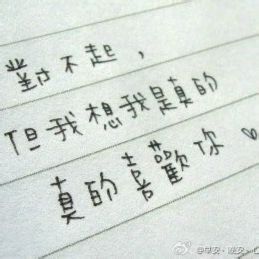 對不起，
但我想我是真的
真的喜歡你♡
@早安·晚安·心